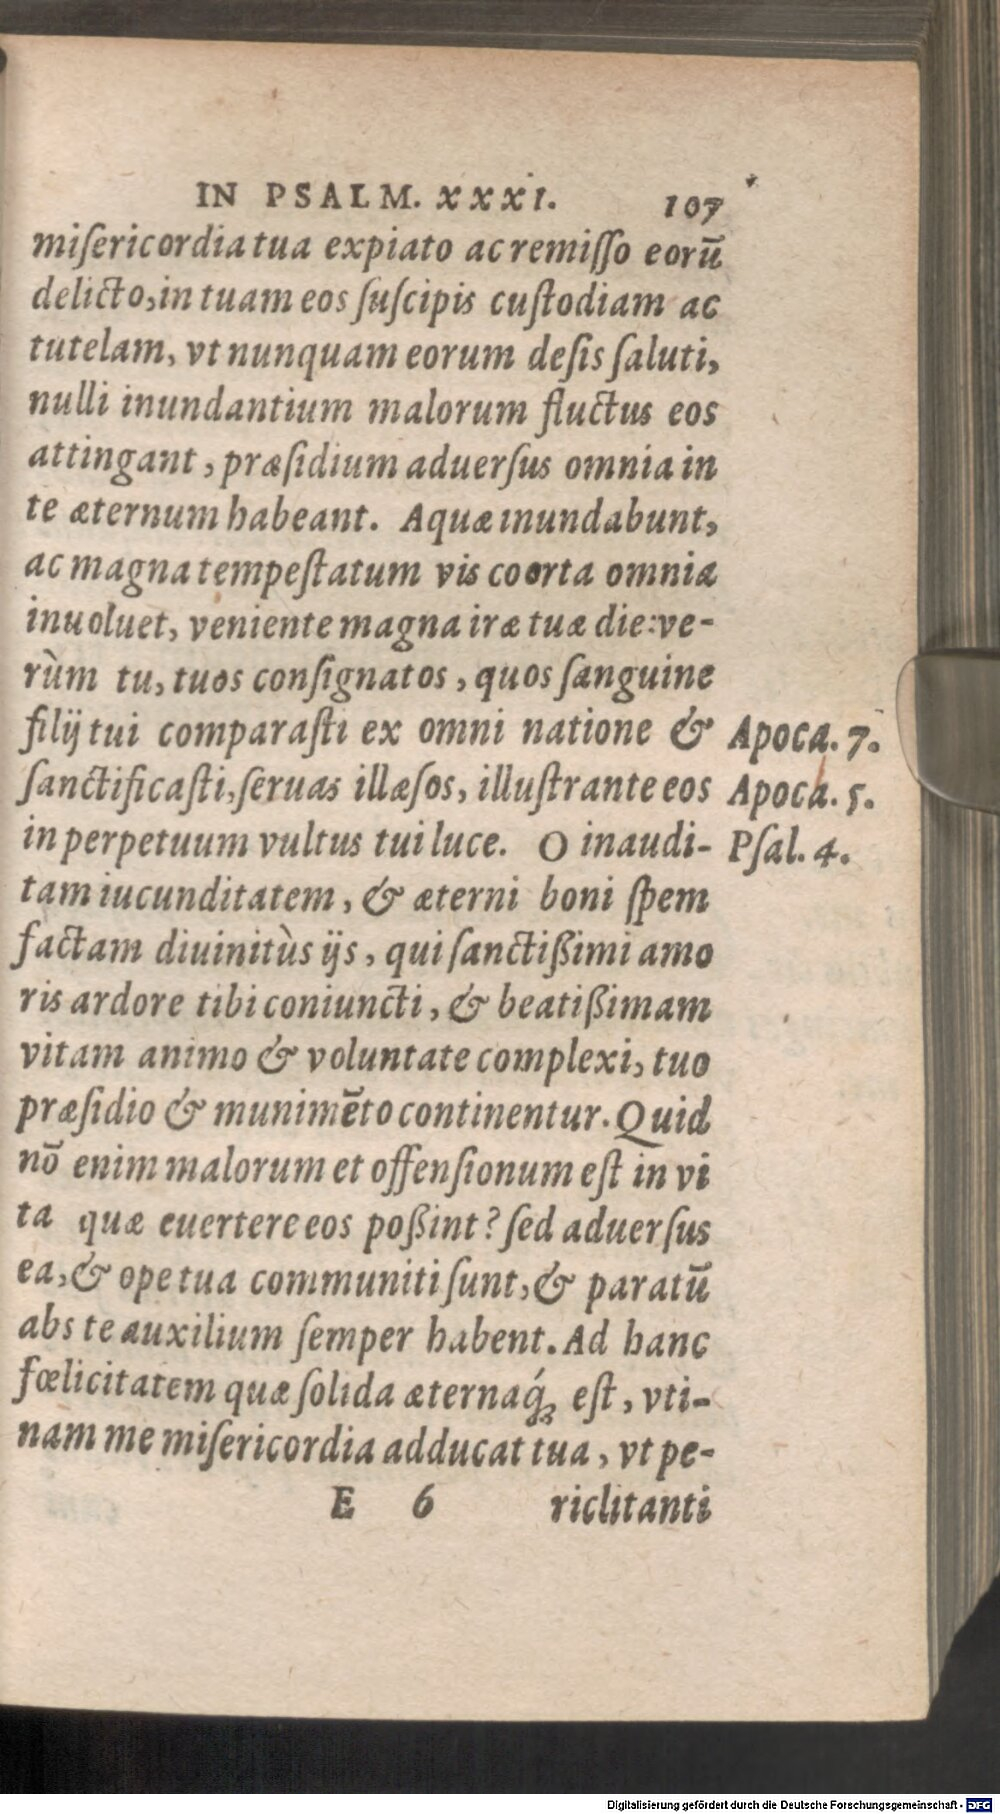 IN PSALM. XXXI. 107
miſericordia tua expiato ac remiſſo eorū
delicto, in tuam eos ſuſcipis cuſtodiam ac
tutelam, vt nunquam eorum deſis ſaluti,
nulli inundantium malorum fluctus eos
attingant, præſidium aduerſus omnia in
te æternum habeant. Aquæ inundabunt,
ac magna tempeſtatum vis coorta omnia
inuoluet, veniente magna iræ tuæ die: ve-
rùm tu, tuos conſignatos, quos ſanguine
filij tui comparaſti ex omni natione & Apoca. 7.
ſanctificaſti, ſeruas illæſos, illuſtrante eos Apoca. 5.
in perpetuum vultus tui luce. O inaudi- Pſal. 4.
tam iucunditatem, & æterni boni ſpem
factam diuinitùs ijs, qui ſanctißimi amo
ris ardore tibi coniuncti, & beatißimam
vitam animo & voluntate complexi, tuo
præſidio & munimēto continentur. Quid
nō enim malorum et offenſionum eſt in vi
ta quæ euertere eos poßint? ſed aduerſus
ea, & ope tua communiti ſunt, & paratū
abs te auxilium ſemper habent. Ad hanc
fœlicitatem quæ ſolida æternaq́ꝫ eſt, vti-
nam me miſericordia adducat tua, vt pe-
E 6 riclitanti
Digitalisierung gefördert durch die Deutsche Forschungsgemeinschaft - DFG